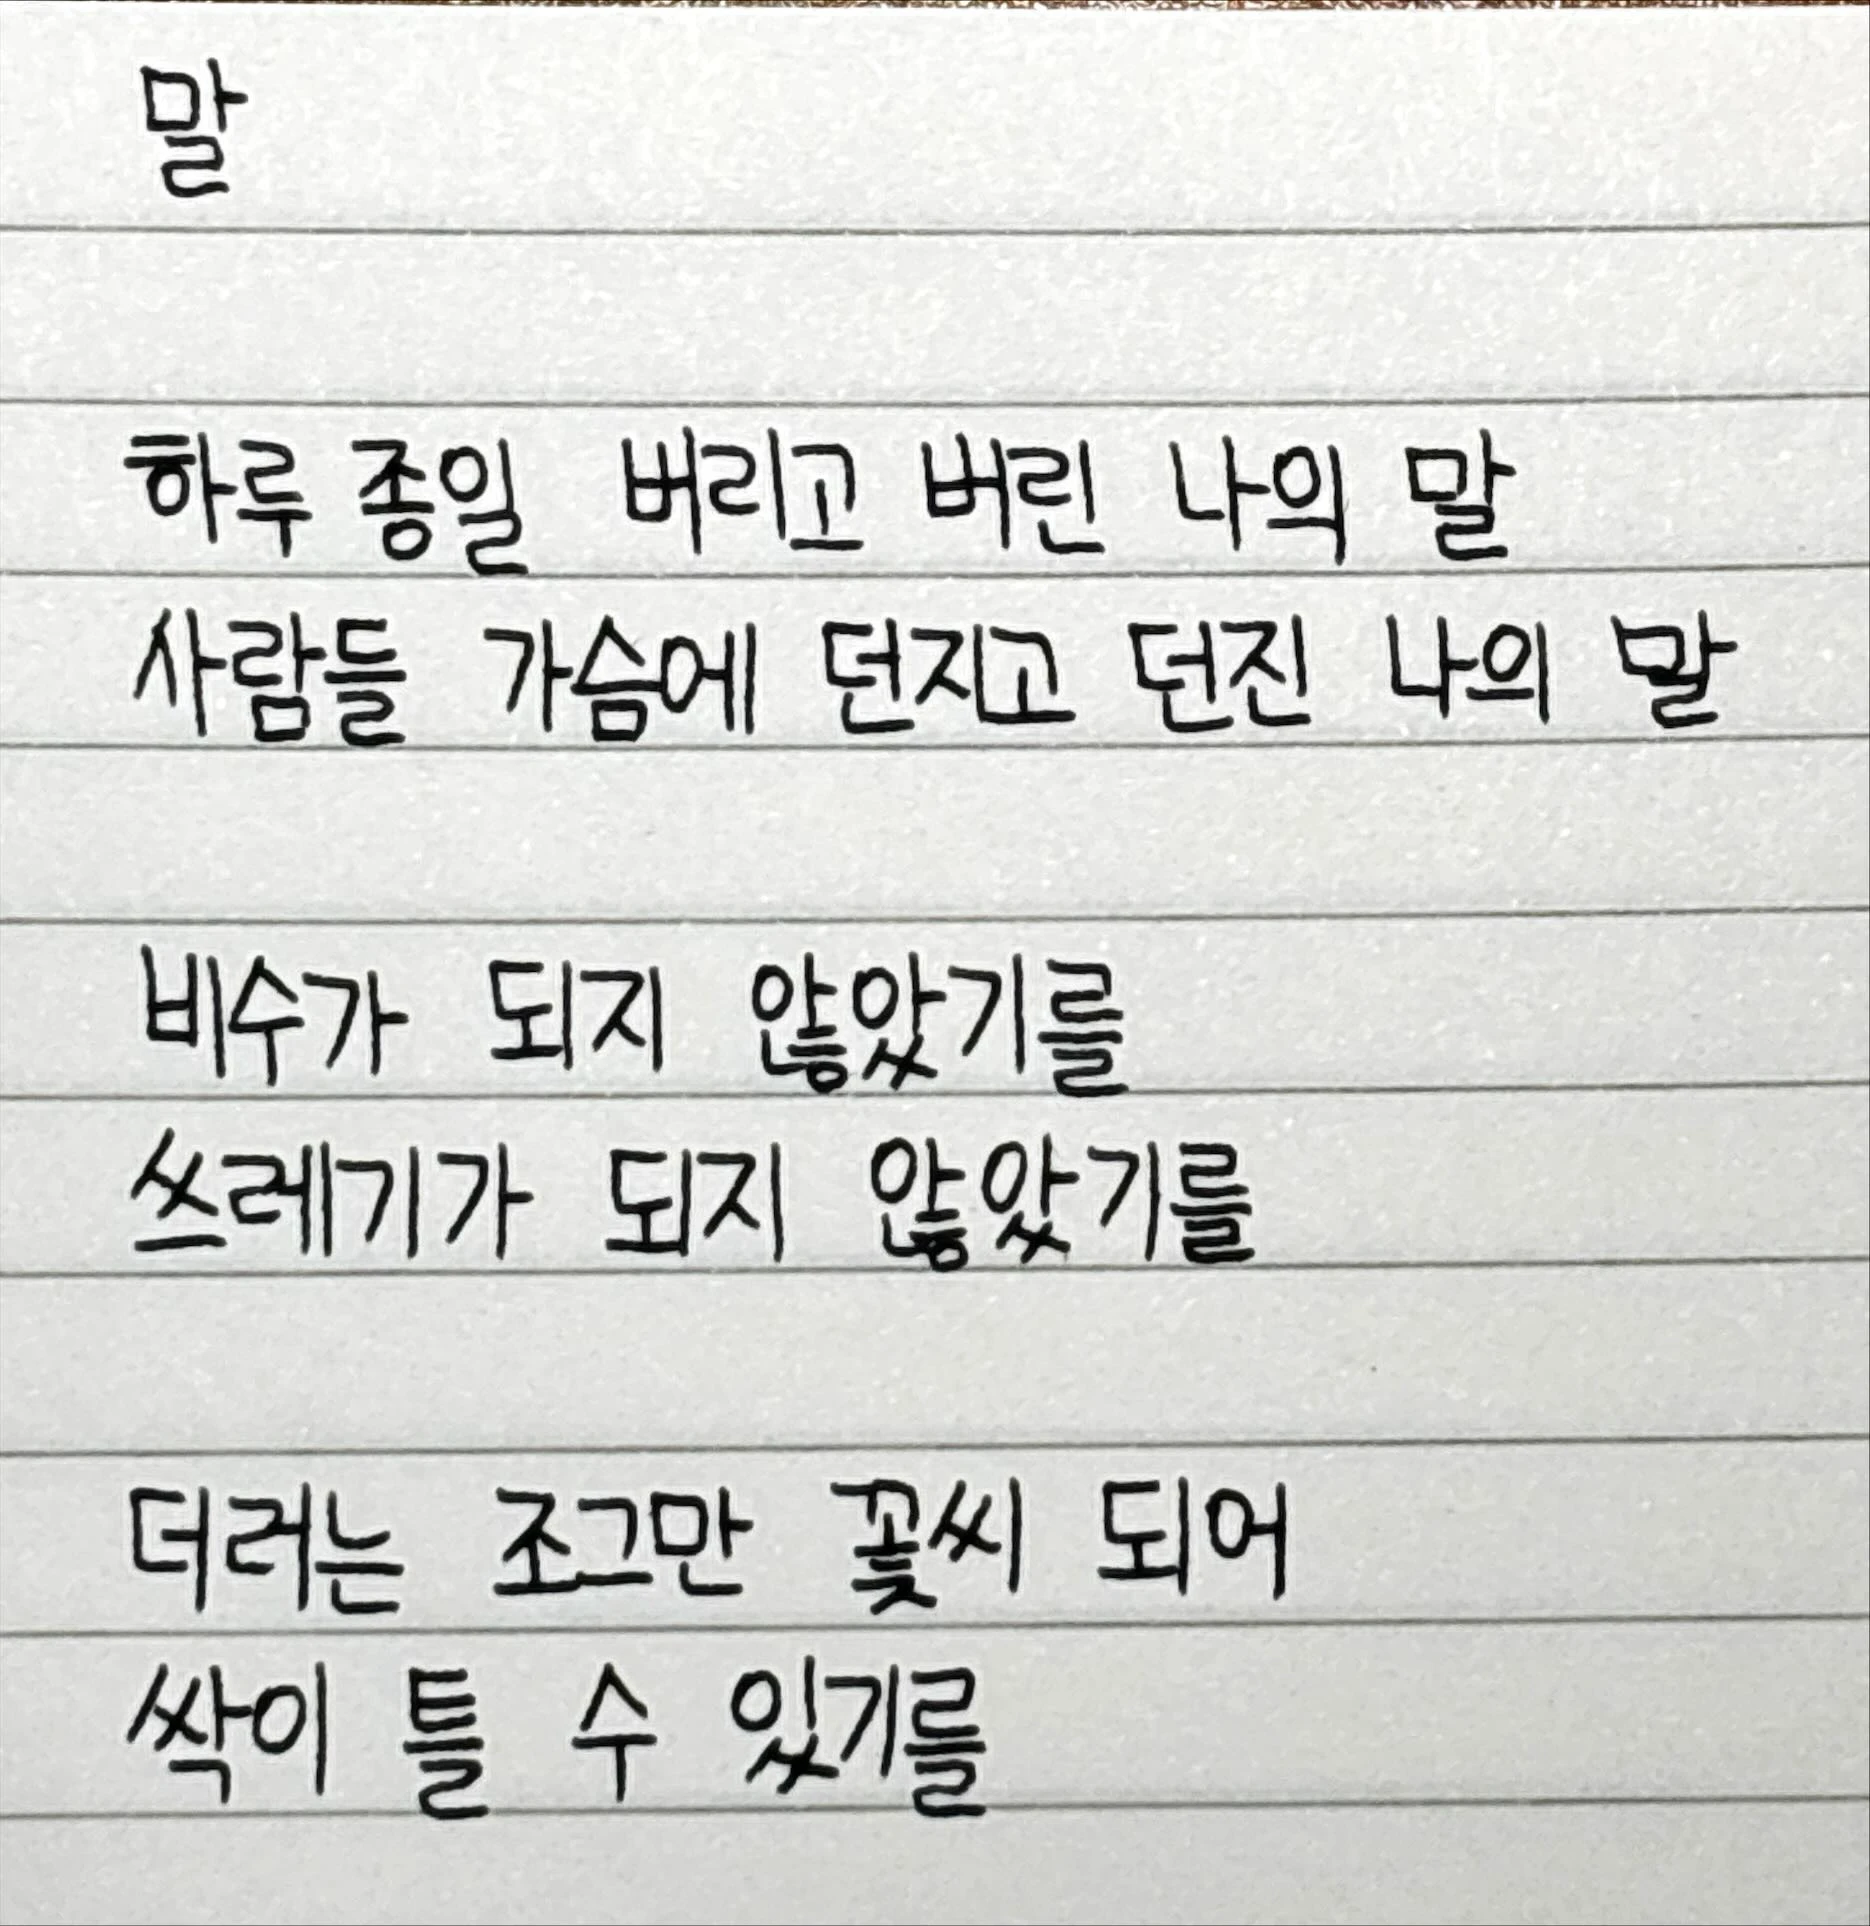 말
하루 종일 버리고 버린 나의 말
사람들 가슴에 던지고 던진 나의 말
비수가 되지 않았기를
쓰레기가 되지 않았기를
더러는 조그만 꽃씨 되어
싹이 틀 수 있기를